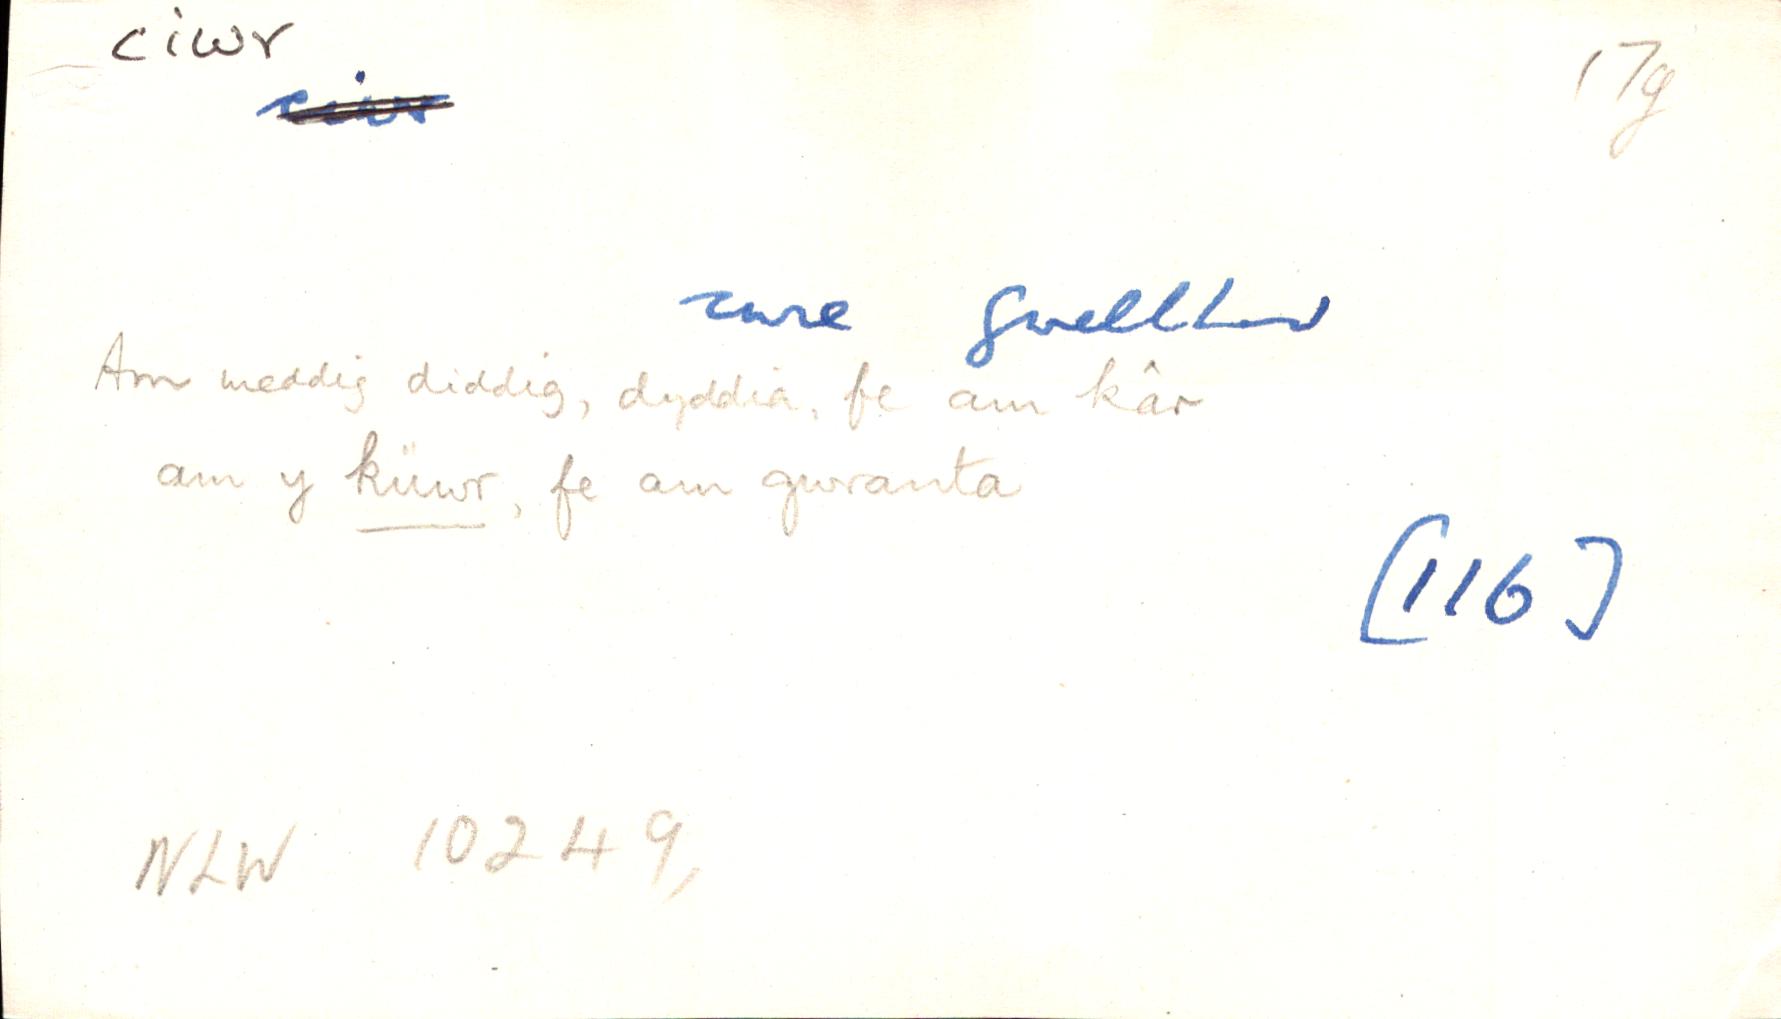 ciwr 17g
ciwr
cure gwellhad
Am meddig diddig, dyddia, fe am kâr
am y küwr, fe am gwranta
[116]
NLW 10249,